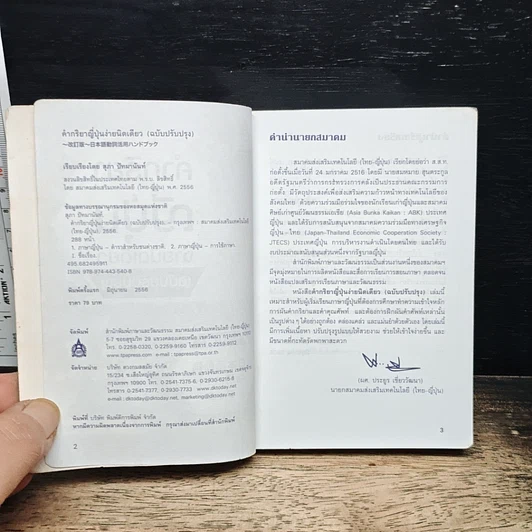 คำกริยาญี่ปุ่นง่ายนิดเดียว (ฉบับปรับปรุง)
～改訂版～日本語動詞活用ハンドブック
เรียบเรียงโดย สุภา ปัทมานันท์
สงวนลิขสิทธิ์ในประเทศไทยตาม พ.ร.บ. ลิขสิทธิ์
โดย สมาคมส่งเสริมเทคโนโลยี (ไทย-ญี่ปุ่น) พ.ศ. 2556
ข้อมูลทางบรรณานุกรมของหอสมุดแห่งชาติ
สุภา ปัทมานันท์.
คำกริยาญี่ปุ่นง่ายนิดเดียว (ฉบับปรับปรุง).-- กรุงเทพฯ : สมาคมส่งเสริมเทคโนโลยี
(ไทย-ญี่ปุ่น), 2556.
288 หน้า.
1. ภาษาญี่ปุ่น - ตำราสำหรับชนต่างชาติ. 2. ภาษาญี่ปุ่น - การใช้ภาษา.
I. ชื่อเรื่อง.
495.682495911
ISBN 978-974-443-540-8
พิมพ์ครั้งแรก มิถุนายน 2556
ราคา 79 บาท
จัดพิมพ์ สำนักพิมพ์ภาษาและวัฒนธรรม สมาคมส่งเสริมเทคโนโลยี (ไทย-ญี่ปุ่น)
5-7 ซอยสุขุมวิท 29 แขวงคลองเตยเหนือ เขตวัฒนา กรุงเทพฯ 10110
โทร. 0-2259-0320, 0-2259-9160 โทรสาร
www.tpapress.com e-mail : tpapress@tpa.or.th
จัดจำหน่าย บริษัท ดวงกมลสมัย จำกัด
15/234 ซ.เสือใหญ่อุทิศ ถนนรัชดาภิเษก แขวงจันทรเกษม เขตจตุจักร
กรุงเทพฯ 10900 โทร. 0-2541-7375-6, 0-2930-6215-8
โทรสาร 0-2541-7377, 0-2930-7733 www.dktoday.net
dktoday@dktoday.net, marketing@dktoday.net
พิมพ์ที่ บริษัท พิมพ์ดีการพิมพ์ จำกัด
หากมีความผิดพลาดเนื่องจากการพิมพ์ กรุณาส่งมาเปลี่ยนที่สำนักพิมพ์
2
คำนำนายกสมาคม
สมาคมส่งเสริมเทคโนโลยี (ไทย-ญี่ปุ่น) เรียกโดยย่อว่า ส.ส.ท.
ก่อตั้งขึ้นเมื่อวันที่ 24 มกราคม 2516 โดยมี นายสมหมาย ฮุนตระกูล
อดีตรัฐมนตรีว่าการกระทรวงการคลังเป็นประธานคณะกรรมการก่อ
ตั้ง มีวัตถุประสงค์เพื่อส่งเสริมความก้าวหน้าทางเทคโนโลยีของ
สังคมไทย ด้วยความร่วมมือร่วมใจของนักเรียนเก่าญี่ปุ่นและสมาคม
ศิษย์เก่าทุนวัฒนธรรมเอเชีย (Asia Bunka Kaikan : ABK) ประเทศ
ญี่ปุ่น และได้รับการสนับสนุนจากสมาคมความร่วมมือทางเศรษฐกิจ
ญี่ปุ่น-ไทย (Japan-Thailand Economic Cooperation Society :
JTECS) ประเทศญี่ปุ่น การบริหารงานดำเนินโดยคนไทย และได้รับ
งบประมาณสนับสนุนส่วนหนึ่งจากรัฐบาลญี่ปุ่น
สำนักพิมพ์ภาษาและวัฒนธรรมเป็นส่วนงานหนึ่งของสมาคมฯ
มีจุดมุ่งหมายในการผลิตหนังสือและสื่อการเรียนการสอนภาษา ตลอดจน
หนังสือแปลเสริมการเรียนภาษาและวัฒนธรรม
หนังสือคำกริยาญี่ปุ่นง่ายนิดเดียว (ฉบับปรับปรุง) เล่มนี้
เหมาะสำหรับผู้เริ่มเรียนภาษาญี่ปุ่นที่ต้องการศึกษาทำความเข้าใจหลัก
การผันคำกริยาและคำคุณศัพท์ และต้องการฝึกผันคำศัพท์เหล่านั้น
เป็นรูปต่าง ๆ ได้อย่างถูกต้อง คล่องแคล่ว และแม่นยำด้วยตัวเอง โดยเล่มนี้
มีการเพิ่มเนื้อหา ปรับปรุงรูปแบบให้สวยงาม ช่วยให้เข้าใจง่ายขึ้น และ
มีขนาดที่กะทัดรัดพกพาสะดวก
(ผศ. ประยูร เชี่ยววัฒนา)
นายกสมาคมส่งเสริมเทคโนโลยี (ไทย-ญี่ปุ่น)
3